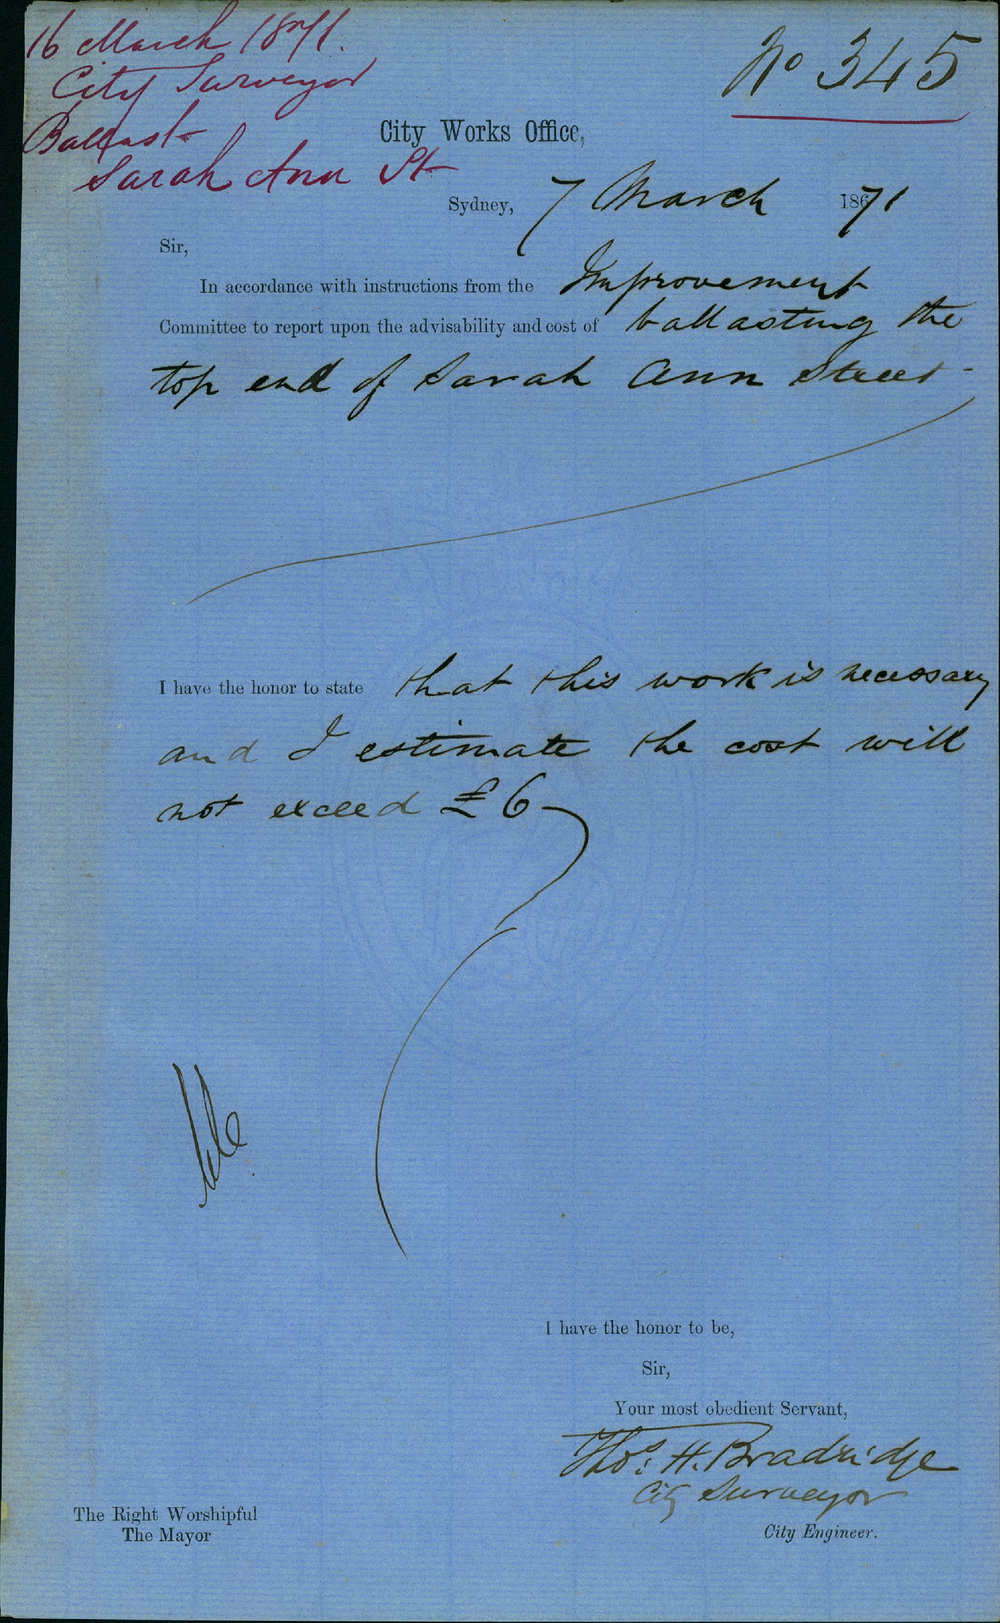 16 March 1871.
City Surveyor
Ballast
Sarah Ann St
No 345
City Works Office,
Sydney, 7 March 18671
Sir,
In accordance with instructions from the Improvement
Committee to report upon the advisability and cost of ballasting the
top end of Sarah Ann Street
I have the honor to state that this work is necessary
and I estimate the cost will
not exceed £6
I have the honor to be,
Sir,
Your most obedient Servant,
Thos. H. Bradridge
City Surveyor
City Engineer.
The Right Worshipful
The Mayor